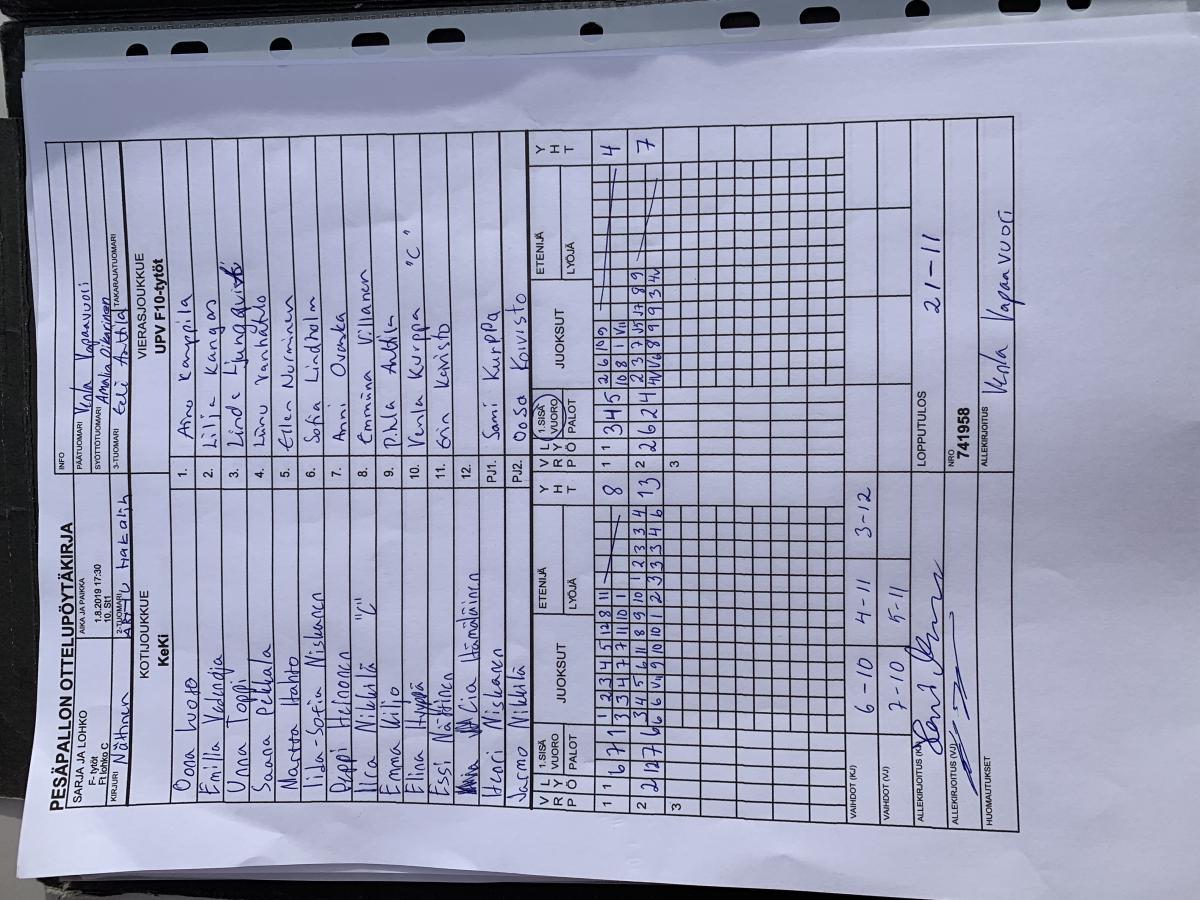 PESÄPALLON OTTELUPÖYTÄKIRJA
SARJA JA LOHKO
F- tytöt
Ft lohko C
AIKA JA PAIKKA
1.8.2019 17:30
10, St1
INFO
PÄÄTUOMARI Venla Vapaavuori
SYÖTTÖTUOMARI Amalia Oikarinen
KIRJURI Näthnen
2-TUOMARI Arttu Hakalih
3-TUOMARI Eeli Anttila TAKARAJATUOMARI
KOTIJOUKKUE
KeKi
VIERASJOUKKUE
UPV F10-tytöt
Oona Luoto 1. Aino Kamppila
Emilla 2. Lilja Kangas
Unna Toppi 3. Linda Ljungqvist
Saana Pekkala 4. Linnu Vanhatalo
Martta Hahto 5. Ellen Nurminen
Iida-Sofia Niskanen 6. Sofia Lindholm
Peppi Heinonen 7. Anni Ovaska
Iira Nikkilä "C" 8. Emmiina Villanen
Emma Kiljo 9. Anttila
Elina Hyppä 10. Venla Kurppa "C"
Essi Näthnen 11. Erin Koivisto
Cia Hämäläinen 12.
Harri Niskanen PJ1. Sami Kurppa
Jarmo Nikkilä PJ2. Oosa Koivisto
V R P L Y Ö 1.SISÄ VUORO PALOT JUOKSUT ETENIJÄ LYÖJÄ Y H T V R P L Y Ö 1.SISÄ VUORO PALOT JUOKSUT ETENIJÄ LYÖJÄ Y H T
1 1 6 7 1 1 2 3 4 5 12 8 11 8 1 1 3 4 5 2 6 10 9 4
3 3 4 7 7 11 10 1 10 8 1 VII
2 2 12 7 6 3 4 5 6 11 8 9 10 1 2 3 3 4 13 2 2 6 2 4 2 3 7 J5 J7 8 9 7
6 6 VII 9 10 10 1 2 3 3 3 4 6 4V V6 8 9 9 3 4V
3 3
VAIHDOT (KJ) 6-10 4-11 3-12
VAIHDOT (VJ) 7-10 5-11
ALLEKIRJOITUS (KJ)
LOPPUTULOS 21-11
ALLEKIRJOITUS (VJ)
NRO
741958
HUOMAUTUKSET
ALLEKIRJOITUS Venla Vapaavuori